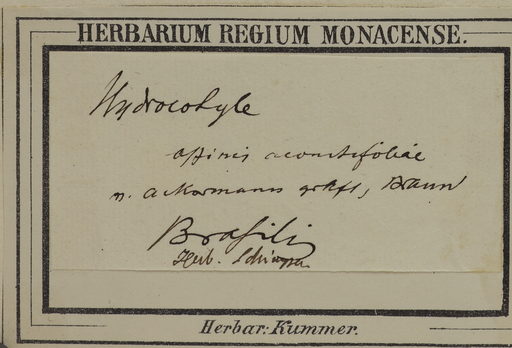 HERBARIUM REGIUM MONACENSE.
Hydrocotyle
affinis aconitifoliae
n. Ackermanns Braun
Brasili
Herb.
Herbar: Kummer.